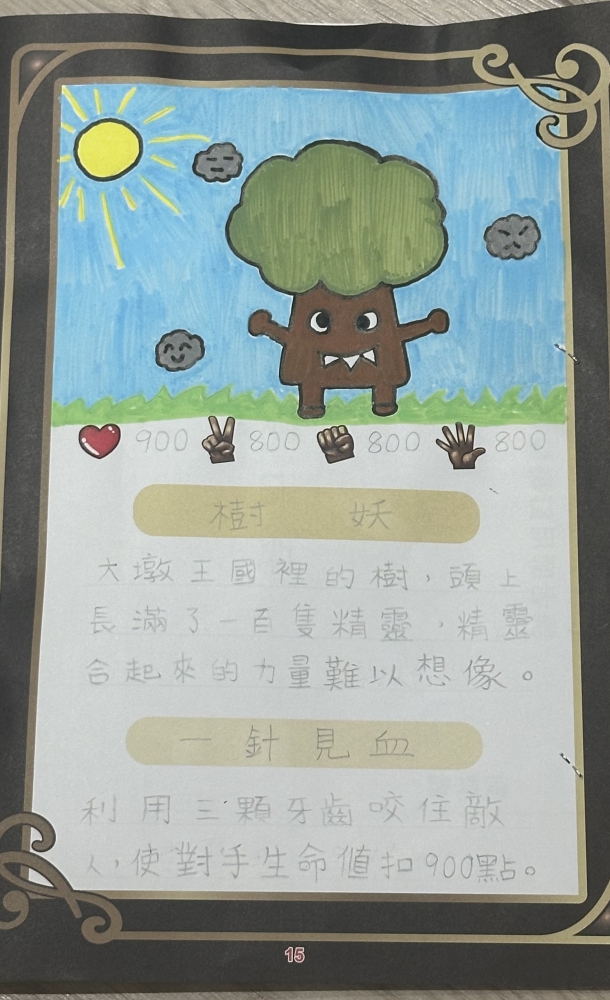 900 800 800 800
樹 妖
大墩王國裡的樹，頭上
長滿了一百隻精靈，精靈
合起來的力量難以想像。
一針見血
利用三顆牙齒咬住敵
人，使對手生命值扣900點。
15